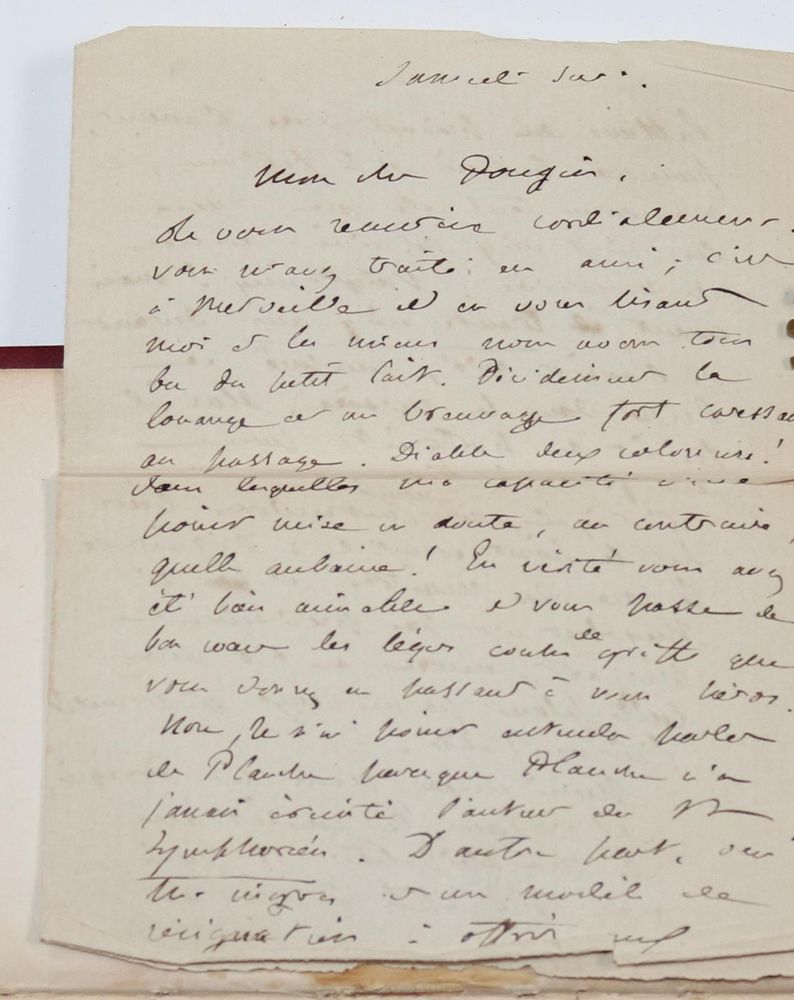 Samedi soir.
Mon cher Pougin,
Je vous remercie cordialement.
vous m'avez traité en ami ; c'est
à merveille et en vous lisant
moi et les miens nous avons tous
bu du petit lait. Décidément la
louange est un breuvage fort caressant
au passage. Diable deux colonnes !
dans lesquelles ma capacité n'est
point mise en doute, au contraire,
quelle aubaine ! En vérité vous avez
été bien aimable et vous passe de
bon cœur les légers coups de griffe que
vous donnez en passant à mon héros.
Non, je n'ai point entendu parler
de Planche parceque Planche n'a
jamais éreinté l'auteur du St
Symphorien. D'autre part,
Mr. Ingres est un modèle de
résignation à offrir aux